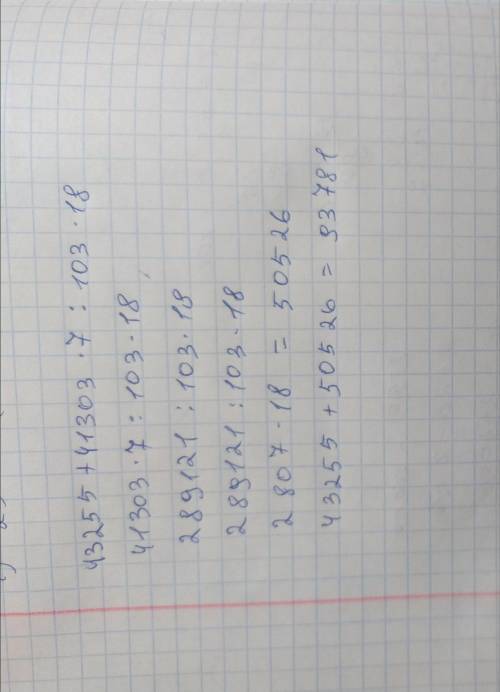 43255 + 41303 · 7 : 103 · 18
41303 · 7 : 103 · 18
289121 : 103 · 18
289121 : 103 · 18
2807 · 18 = 50526
43255 + 50526 = 93781